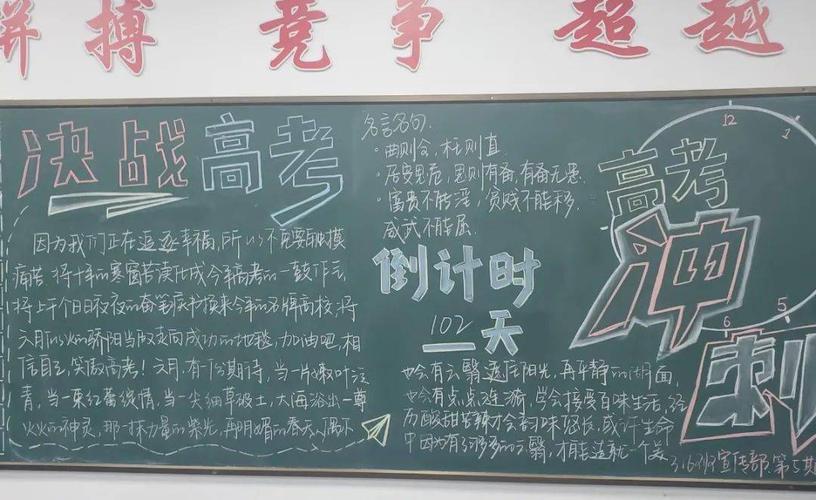 拼搏 竞争 超越
决战高考
因为我们正在追逐幸福,所以不需要触摸
痛苦.将十年的寒窗苦读化成今年高考的一鼓作气,
将上千个日日夜夜的奋笔疾书换来今年的名牌高校,将
六月似火的骄阳当做走向成功的地毯,加油吧,相
信自己,笑傲高考!六月,有一份期待,当一片嫩叶泛
青,当一束红蕾绽情,当一尖细草破土,大海浴出一尊
火火的神灵,那一抹力量的紫光,再明媚的春天
名言名句.
·曲则全,枉则直
·居安思危,思则有备,有备无患.
·富贵不能淫,贫贱不能移,
威武不能屈
倒计时
102天
也会有云翳遮住阳光,再平静的湖面,
也会有点点涟漪,学会接受百味生活,经
历酸甜苦辣才会韵味悠长,或许生命
中因为有云翳,才能造就一个美
高考
冲
刺
12
1
5
6
316班宣传部.第5期